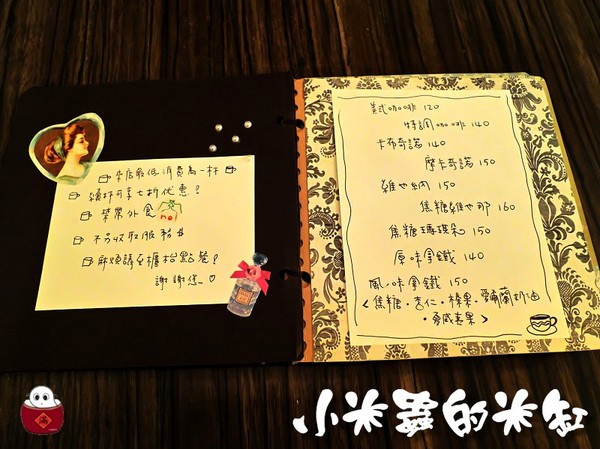 本店最低消費為一杯
續杯可享七折優惠?
禁帶外食 no!
不另收取服務$
麻煩請至櫃檯點餐?
謝謝您_♡
美式咖啡 120
特調咖啡 140
卡布奇諾 140
摩卡奇諾 150
維也納 150
焦糖維也那 160
焦糖瑪琪朵 150
原味拿鐵 140
風味拿鐵 150
<焦糖·杏仁·榛果·愛爾蘭奶油
·夏威夷果>
小米蟲的米缸